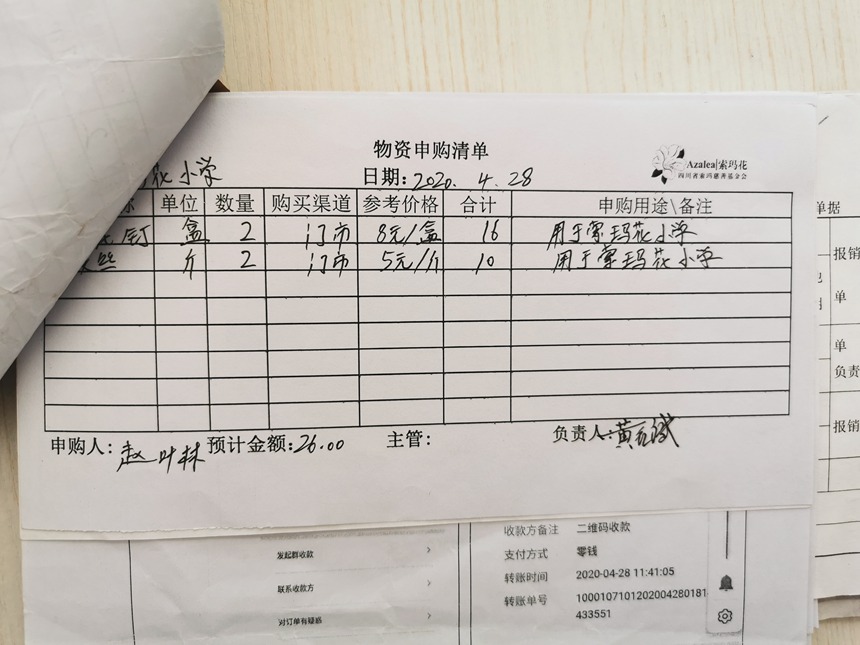 物资申购清单
Azalea|索玛花
四川省索玛慈善基金会
花小学
日期:2020.4.28
称 单位 数量 购买渠道 参考价格 合计 申购用途\备注
钉 盒 2 门市 8元/盒 16 用于索玛花小学
丝 斤 2 门市 5元/斤 10 用于索玛花小学
申购人:赵叶林 预计金额:26.00 主管: 负责人:黄
单据
报销
单
单
负责
报销
发起群收款
联系收款方
对订单有疑惑
收款方备注 二维码收款
支付方式 零钱
转账时间 2020-04-28 11:41:05
转账单号 1000107101202004280181
433551